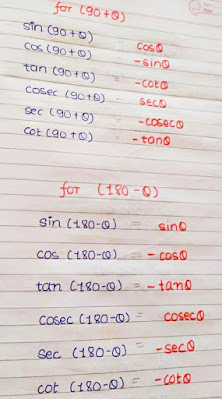 for (90+θ)
sin (90+θ) cosθ
cos (90+θ) -sinθ
tan (90+θ) -cotθ
cosec (90+θ) = secθ
sec (90+θ) -cosecθ
cot (90+θ) = -tanθ
for (180-θ)
sin (180-θ) = sinθ
cos (180-θ) = -cosθ
tan (180-θ) = -tanθ
cosec (180-θ) = cosecθ
sec (180-θ) = -secθ
cot (180-θ) = -cotθ